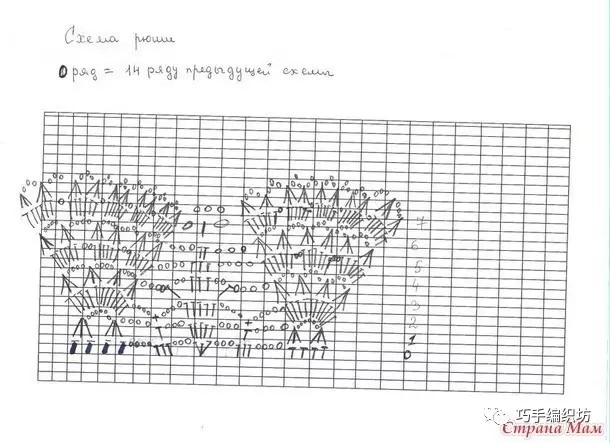 Схема рюши
0 ряд = 14 ряду предыдущей схемы
7
6
5
4
3
2
1
0
巧手编织坊
Страна Мам